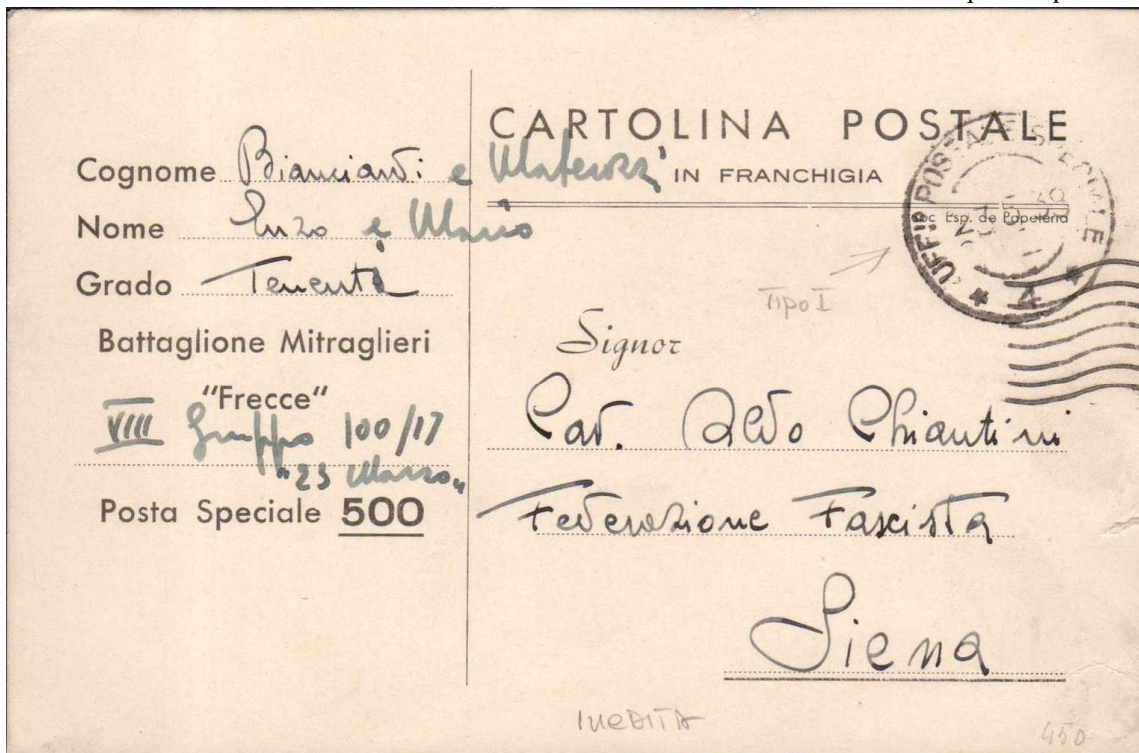 Cognome Bianciardi e Materozzi
Nome Enzo e Mario
Grado Tenente
Battaglione Mitraglieri
"Frecce"
VIII Gruppo 100/17
"23 Marzo"
Posta Speciale 500
CARTOLINA POSTALE
IN FRANCHIGIA
Soc. Esp. de Papelería
UFF° POSTALE SPECIALE
* 4 *
Tipo I
Signor
Cav. Aldo Chiantini
Federazione Fascista
Siena
INEDITA
450